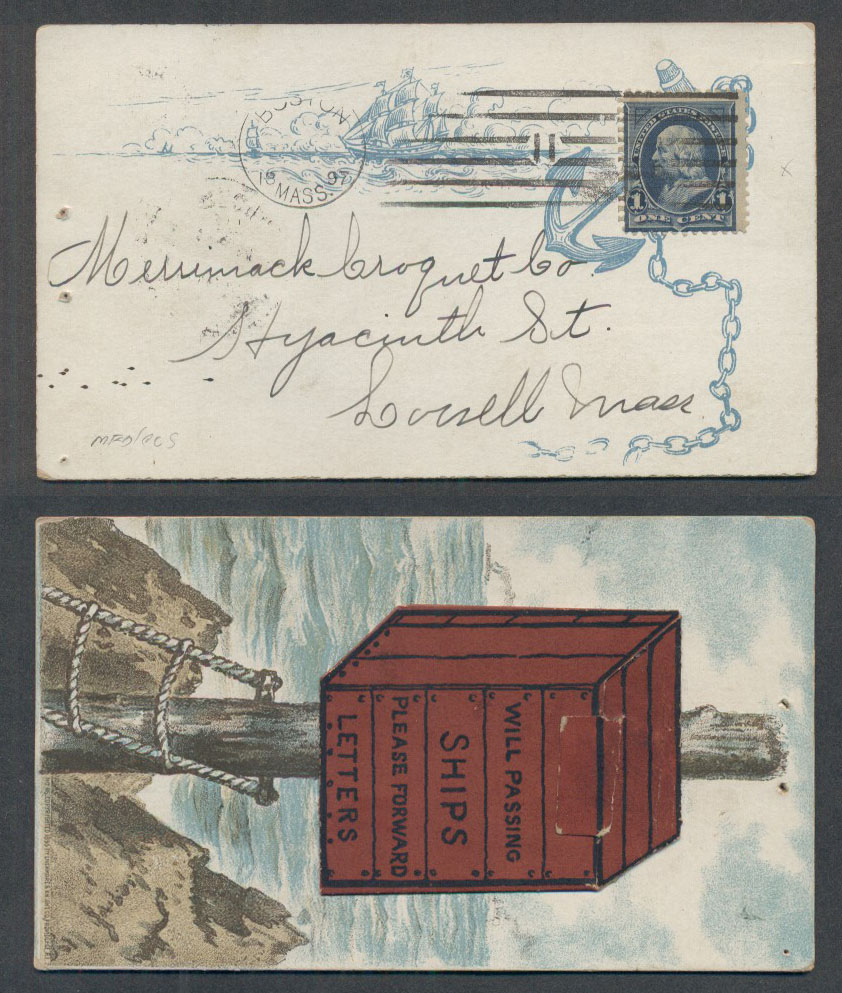 BOSTON
MASS.
11
UNITED STATES
1 1
ONE CENT
Merrimack Croquet Co
Hyacinth St.
Lowell Mass
WILL PASSING
SHIPS
PLEASE FORWARD
LETTERS